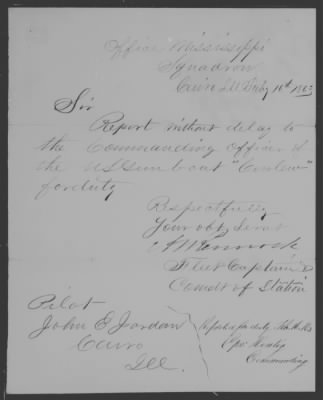 Office Mississippi
Squadron
Cairo Ill July 10th 1863
Sir
Report without delay to
the Commanding Officer of
the U.S. Gun boat "Curlew"
for duty
Respectfully
Your obt. Servt
A M Pennock
Fleet Captain &
Comdt of Station
Pilot
John E Jordan
Cairo
Ill.
Reported for duty
Commanding